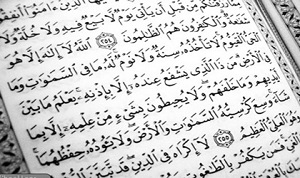 رَزَقْنَٰكُم مِّن قَبْلِ أَن يَأْتِىَ يَوْمٌ لَّا بَيْعٌ فِيهِ وَلَا خُلَّةٌ وَلَا
شَفَٰعَةٌ وَٱلْكَٰفِرُونَ هُمُ ٱلظَّٰلِمُونَ ٢٥٤ ٱللَّهُ لَآ إِلَٰهَ إِلَّا هُوَ
ٱلْحَىُّ ٱلْقَيُّومُ لَا تَأْخُذُهُۥ سِنَةٌ وَلَا نَوْمٌ لَّهُۥ مَا فِى ٱلسَّمَٰوَٰتِ وَمَا
فِى ٱلْأَرْضِ مَن ذَا ٱلَّذِى يَشْفَعُ عِندَهُۥٓ إِلَّا بِإِذْنِهِۦ يَعْلَمُ مَا بَيْنَ
أَيْدِيهِمْ وَمَا خَلْفَهُمْ وَلَا يُحِيطُونَ بِشَىْءٍ مِّنْ عِلْمِهِۦٓ إِلَّا بِمَا
شَآءَ وَسِعَ كُرْسِيُّهُ ٱلسَّمَٰوَٰتِ وَٱلْأَرْضَ وَلَا يَـُٔودُهُۥ حِفْظُهُمَا
وَهُوَ ٱلْعَلِىُّ ٱلْعَظِيمُ ٢٥٥ لَآ إِكْرَاهَ فِى ٱلدِّينِ قَد تَّبَيَّنَ
فَمَن يَكْفُرْ بِٱلطَّٰغُوتِ